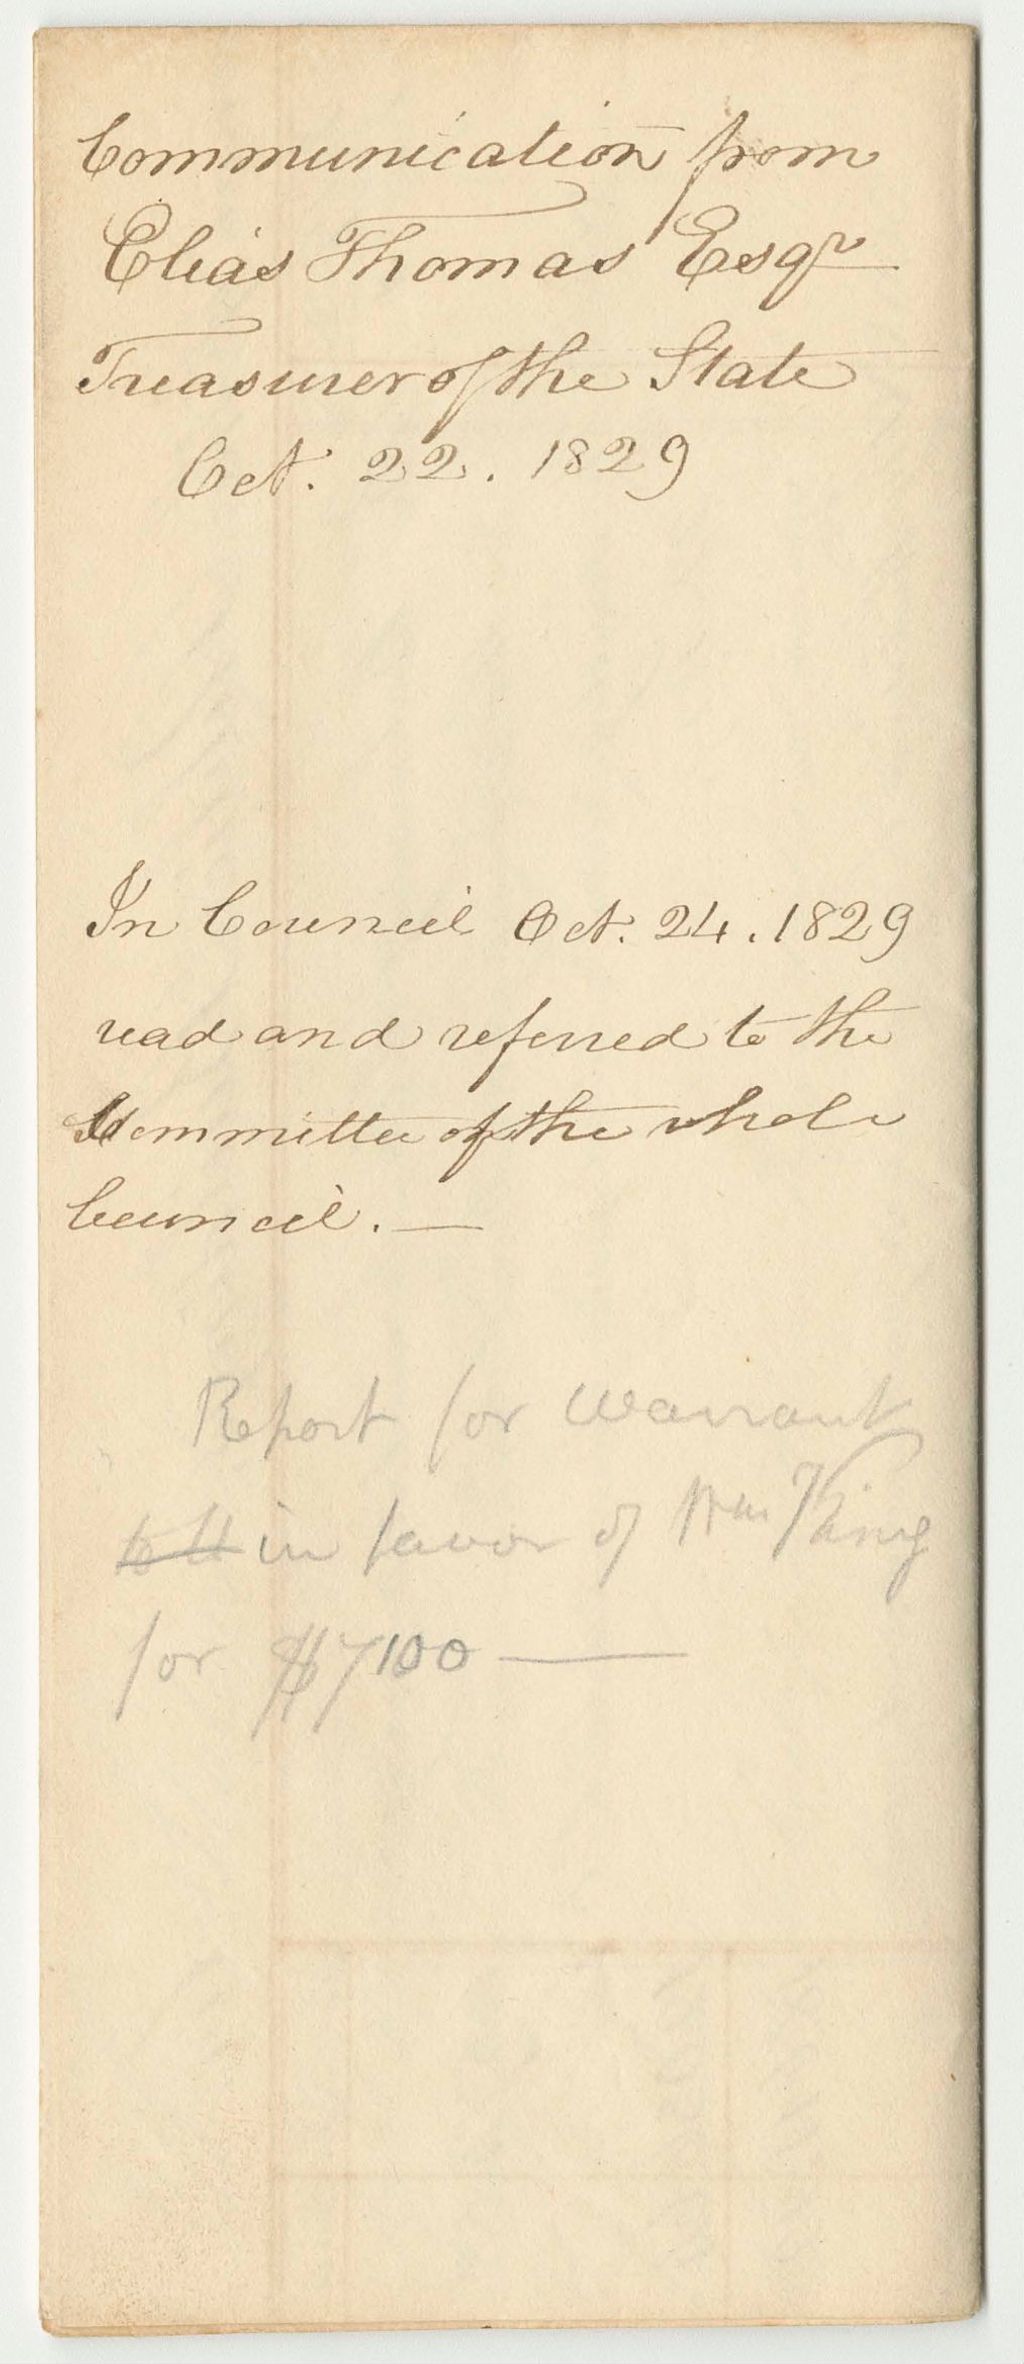 Communication from
Elias Thomas Esqr
Treasurer of the State
Oct. 22. 1829
In Council Oct. 24. 1829
read and referred to the
Committee of the whole
Council. —
Report for warrant
in favor of Wm King
for $7100 —